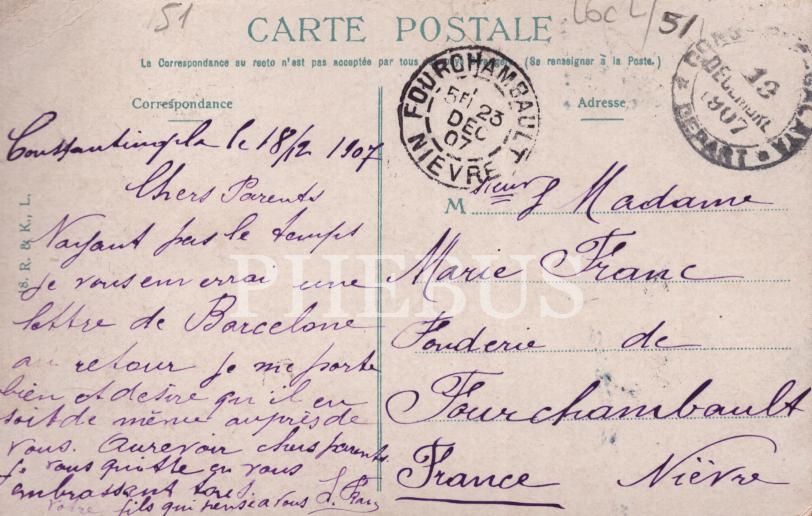 51
CARTE POSTALE
51
La Correspondance au recto n'est pas acceptée par tous (Se renseigner à la Poste.)
Correspondance
Adresse
FOURCHAMBAULT
23
DEC
07
NIEVRE
13
DECEMBRE
1907
DEPART
Constantinople le 18/12 1907
Chers Parents
Nayant pas le temps
je vous enverrai une
lettre de Barcelone
au retour je me porte
bien et desire qu'il en
soit de même auprès de
vous. Aurevoir chers parents
je vous quitte en vous
embrassant tous.
votre fils qui pense a vous
M sieur & Madame
Marie Franc
Fonderie de
Fourchambault
France Nièvre
18. R. & K., L.
PHEBUS